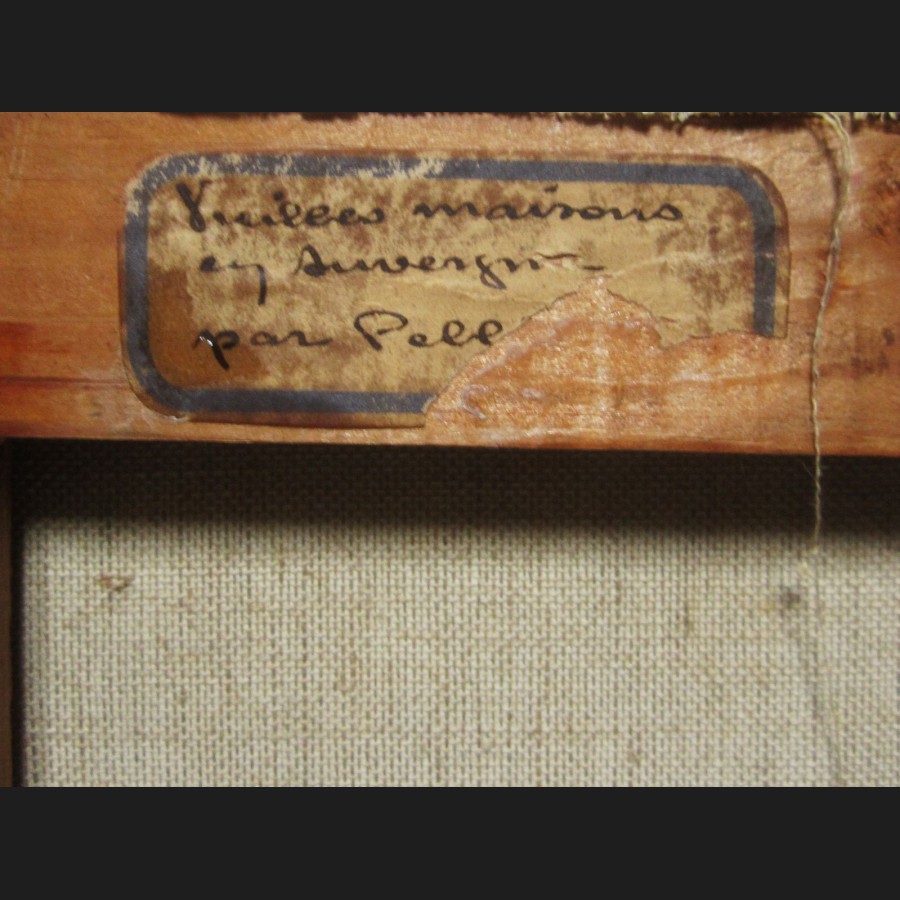 Vieilles maisons
en Auvergne
par Pell